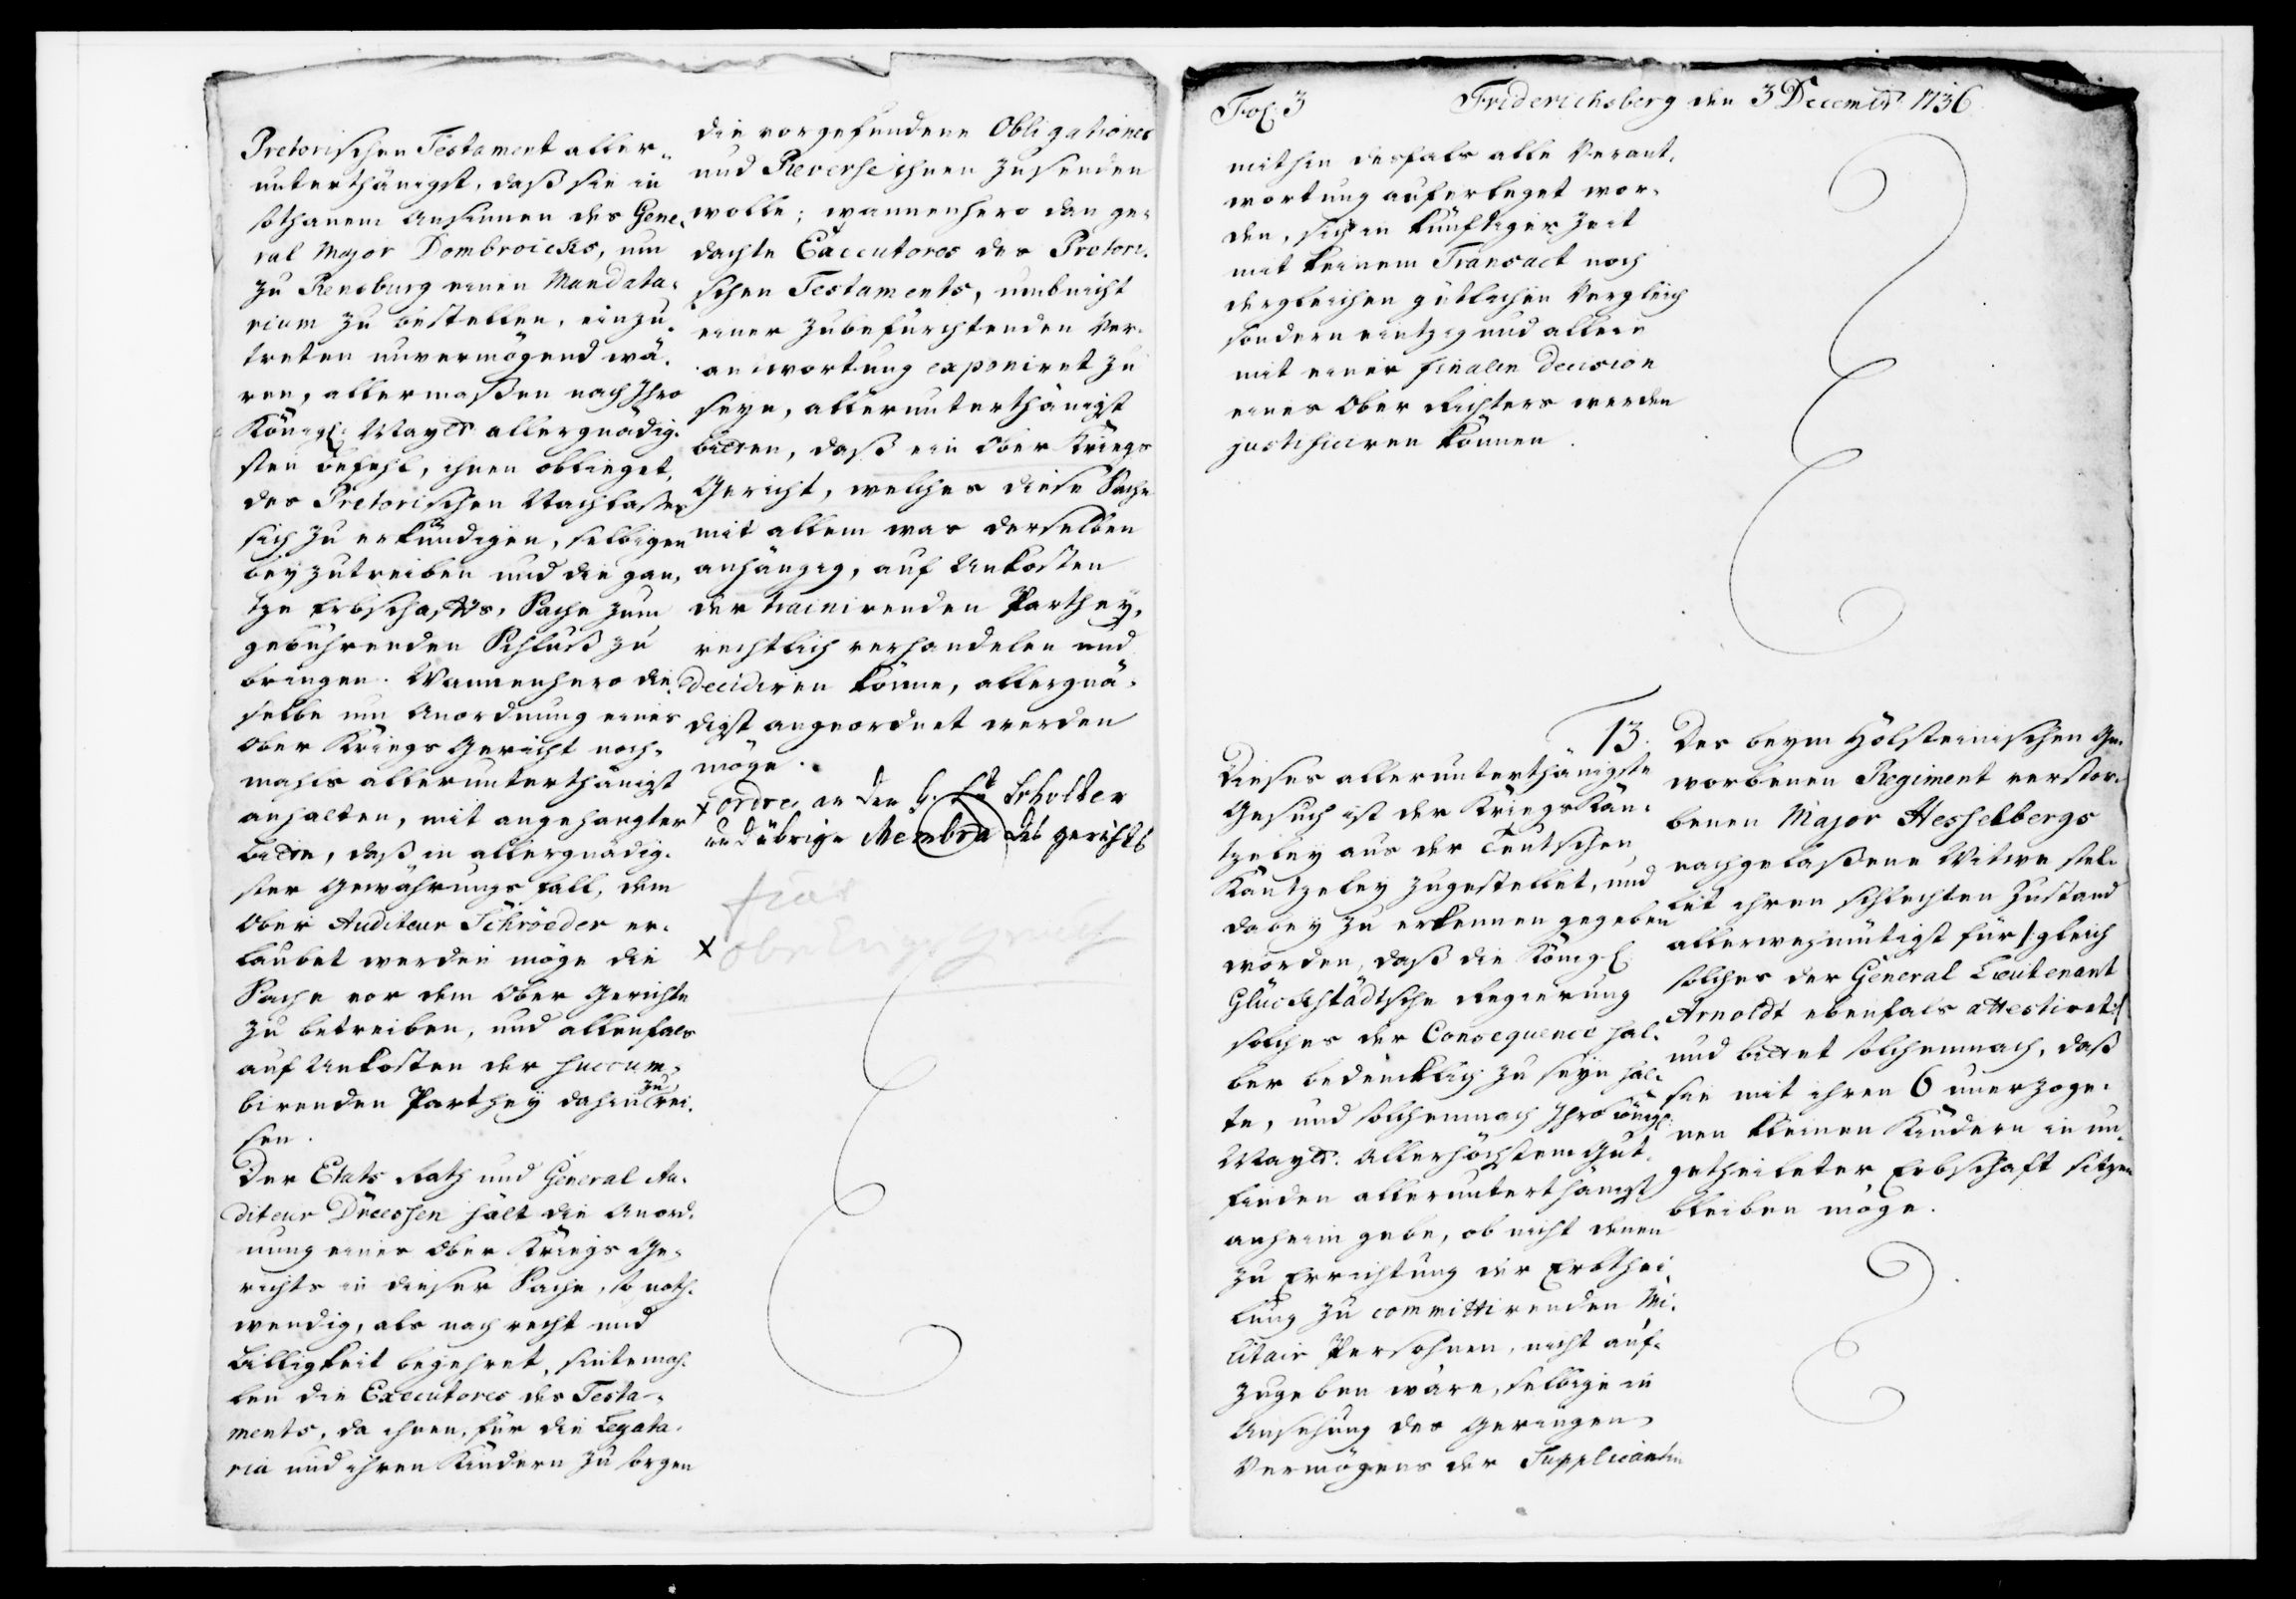 Pretorischen Testament aller-
unterthänigst, daß sie in
sothanem Ansinnen des Gene-
ral Major Dombroicks, um
zu Rensburg einen Mandata-
rium zu bestellen, einzu-
treten unvermögend wä-
ren, allermaßen nach Ihro
Königl: Mayts allergnädig-
sten befehl, ihnen oblieget,
des Pretorischen Nachlaßes
sich zu erkundigen, selbigen
beyzutreiben und die gan-
tze Erbschaffts-Sache zum
gebührenden Schluß zu
bringen. Wannenhero die-
selbe um Anordnung eines
Ober Kriegs Gericht noch-
mahls allerunterthänigst
anhalten, mit angehangter
bitte, daß in allergnädig-
ster Gewährungs fall, dem
Ober Auditeur Schröeder er-
laubet werden möge die
Sache vor dem Ober Gerichte
zu betreiben, und allenfals
auf Unkosten der succum-
birenden Parthey dahin zu rei-
sen.
Der Etats Rath und General Au-
diteur Dreessen hält die Anord-
nung eines Ober Kriegs Ge-
richts in dieser Sache, so noth-
wendig, als nach recht und
billigkeit begehret, sintemah-
len die Executores des Testa-
ments, da ihnen, für die Legata-
ria und ihren Kindern zu sorgen
die vorgefundene Obligationes
und Reverse ihnen zusenden
wolle; wannenhero den ge-
dachte Executores des Pretori-
schen Testaments, umb nicht
einer zubefürchtenden Ver-
antwortung exponiret zu
seyn, allerunterthänigst
bitten, daß ein Ober Kriegs
Gericht, welches diese Sache
mit allem was derselben
anhängig, auf Unkosten
der trainirenden Parthey,
rechtlich verhandelen und
decidiren könne, allergnä-
digst angeordnet werden
möge.
x ordre an den G. Lt Scholten
und übrige Membra des gerichts
fiat
x
Fol: 3
Friderichsberg den 3 Decembr 1736
mithin desfals alle Verant-
wortung auferleget wor-
den, sich in künftiger Zeit
mit keinem Transact noch
dergleichen gütlichen Vergleich
sondern eintzig und allein
mit einer finalen Decision
eines Ober Richters werden
justificiren können.
13.
Dieses allerunterthänigste
Gesuch ist der Kriegs Kan-
tzeley aus der Teutschen
Kantzeley zugestellet, und
dabey zu erkennen gegeben
worden, daß die Königl:
Glückstädtsche Regierung
solches der Consequence hal-
ber bedencklich zu seyn hal-
te, und solchemnach Ihro Königl:
Mayts. Allerhöchstem Gut-
finden allerunterthänigst
anheim gebe, ob nicht denen
zu Errichtung der Erbthei-
lung zu committirenden Mi-
litair Persohnen, nicht auf-
zugeben wäre, selbige in
Ansehung des Geringen
Vermögens der Supplicantin
Des beym Holsteinischen Ge-
worbenen Regiment verstor-
benen Major Hesselbergs
nachgelaßene Witwe stel-
let ihren schlechten Zustand
allerwehmütigst für /: gleich
solches der General Lieutenant
Arnoldt ebenfals attestiret :/
und bittet solchemnach, daß
sie mit ihren 6 unerzoge-
nen kleinen Kindern in un-
getheileter Erbschaft sitzen
bleiben möge.